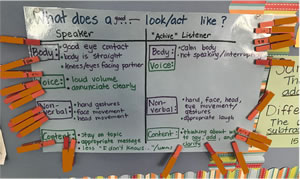 What does a good look/act like?
Speaker
"Active" Listener
Body:
• good eye contact
• body is straight
• knees/eyes facing partner
Voice:
• loud volume
• annunciate clearly
Non-Verbal:
• hand gestures
• face movement
• head movement
Content:
• stay on topic
• appropriate message
• less "I don't know..."/"umm"
Body:
• calm body
Voice:
• not speaking/interrupting
Non-Verbal:
• hand, face, head,
eye movement/
gestures
• appropriate laugh
Content:
• thinking about
to say, add, and
clarity